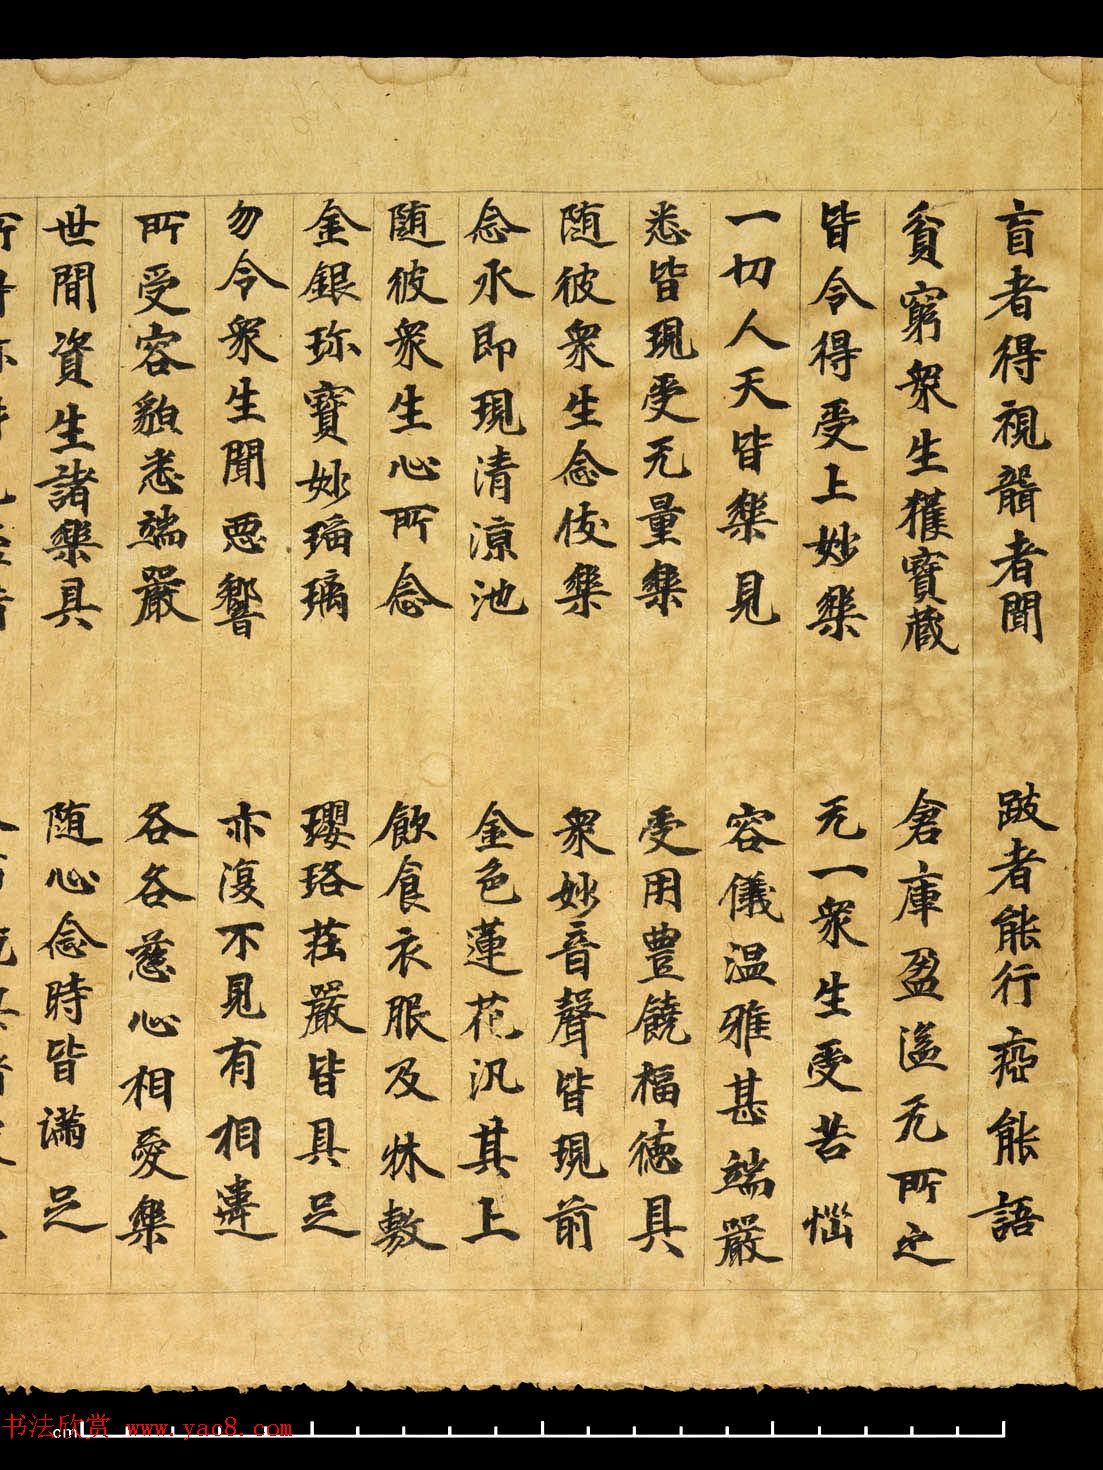 盲者得視聾者聞 跛者能行瘂能語
貧窮衆生獲寶藏 倉庫盈溢无所乏
皆令得受上妙樂 无一衆生受苦惱
一切人天皆樂見 容儀温雅甚端嚴
悉皆現受无量樂 受用豊饒福德具
随彼衆生念伎樂 衆妙音聲皆現前
念水即現清涼池 金色蓮花汎其上
随彼衆生心所念 飲食衣服及牀敷
金銀珎寶妙瑠璃 瓔珞莊嚴皆具足
勿令衆生聞惡響 亦復不見有相違
所受容貌悉端嚴 各各慈心相愛樂
世間資生諸樂具 随心念時皆滿足
书法欣赏 www.yac8.com
cm